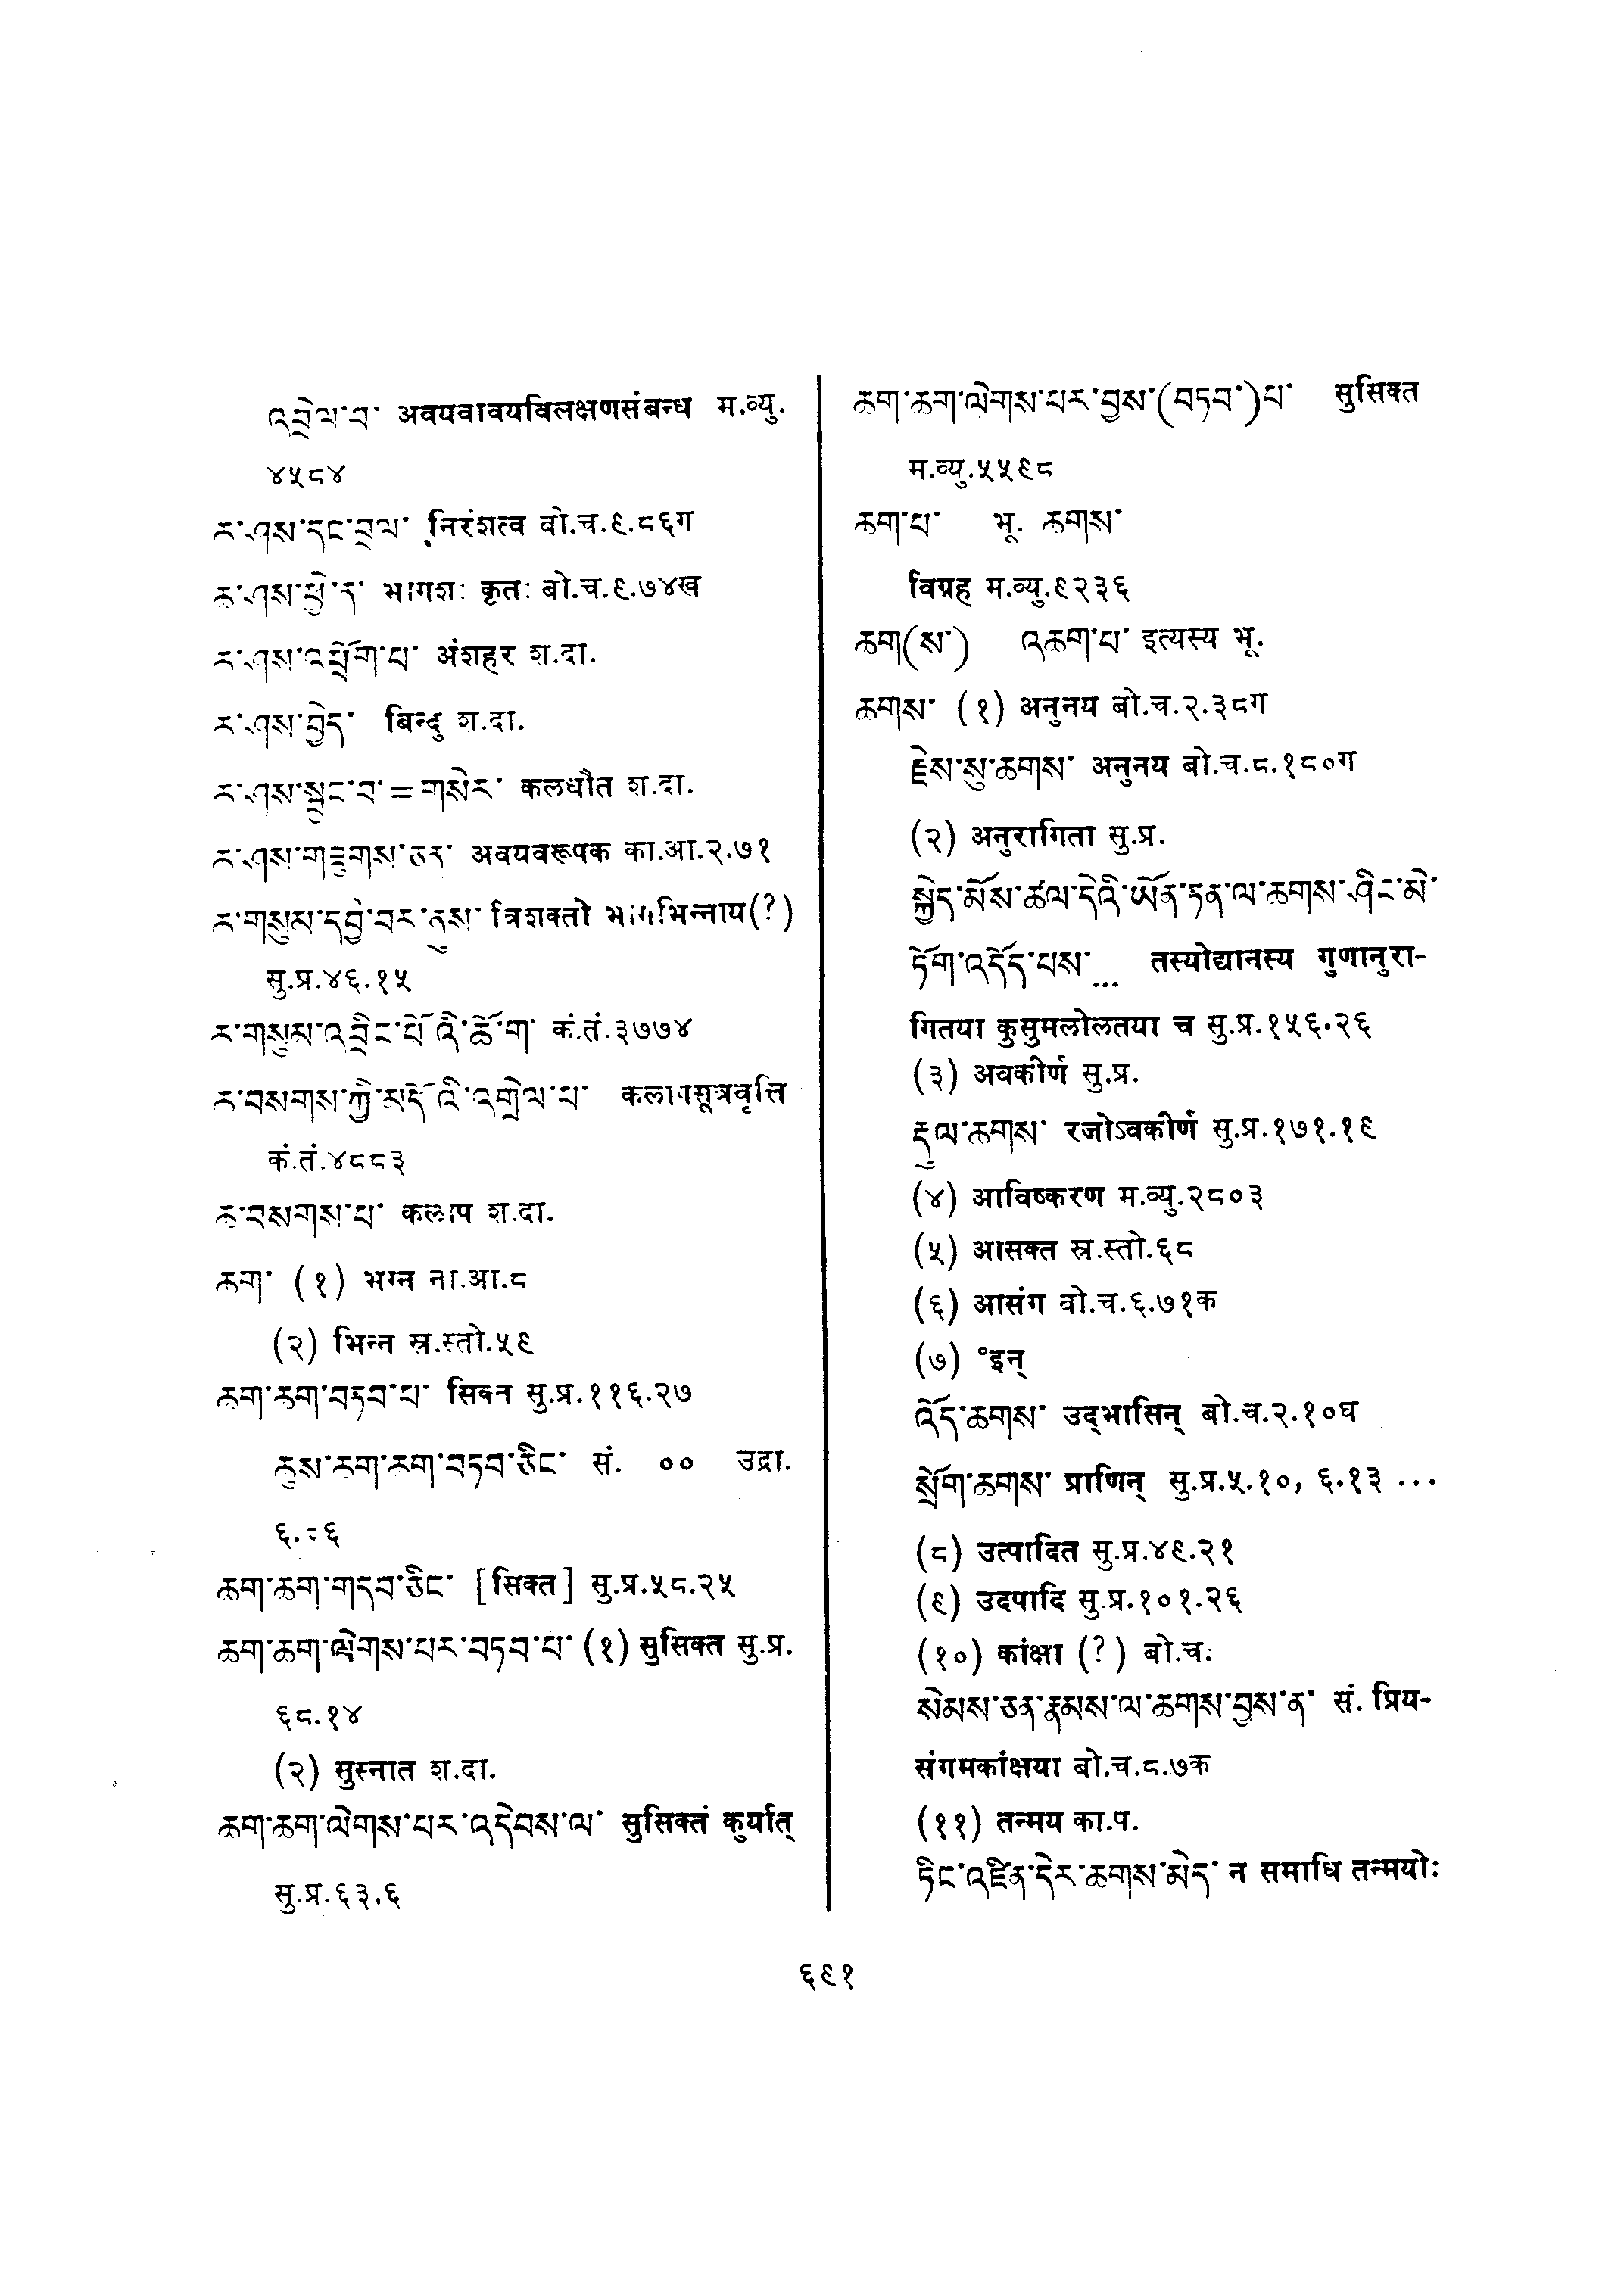 འབྲེལ་བ་ अवयवावयविलक्षणसंबन्ध म.व्यु.
४५८४
ཆ་ཤས་དང་བྲལ་ निरंशत्व बो.च.९.८६ग
ཆ་ཤས་ཕྱེ་ན་ भागशः कृतः बो.च.९.७४ख
ཆ་ཤས་འཕྲོག་པ་ अंशहर श.दा.
ཆ་ཤས་བྱེད་ बिन्दु श.दा.
ཆ་ཤས་སྦྱང་བ་ = གསེར་ कलधौत श.दा.
ཆ་ཤས་གཟུགས་ཅན་ अवयवरूपक का.आ.२.७१
ཆ་གསུམ་དབྱེ་བར་ནུས་ त्रिशक्तो भागभिन्नाय(?)
सु.प्र.४६.१५
ཆ་གསུམ་འབྲིང་པོ་འི་ཆོ་ག་ कं.तं.३७७४
ཆ་བསགས་ཀྱི་མདོ་འི་འགྲེལ་པ་ कलापसूत्रवृत्ति
कं.तं.४८८३
ཆ་བསགས་པ་ कलाप श.दा.
ཆག་ (१) भग्न ना.आ.८
(२) भिन्न स्र.स्तो.५९
ཆག་ཆག་བཏབ་པ་ सिक्त सु.प्र.११६.२७
ཆུས་ཆག་ཆག་བཏབ་ཅིང་ सं. ०० उद्रा.
ཆག་ཆག་གདབ་ཅིང་ [सिक्त] सु.प्र.५८.२५
ཆག་ཆག་ལེགས་པར་བཏབ་པ་ (१) सुसिक्त सु.प्र.
६८.१४
(२) सुस्नात श.दा.
ཆག་ཆག་ལེགས་པར་འདེབས་ལ་ सुसिक्तं कुर्यात्
सु.प्र.६३.६
ཆག་ཆག་ལེགས་པར་བྱས་(བཏབ་)པ་ सुसिक्त
म.व्यु.५५९८
ཆག་པ་ भू. ཆགས་
विग्रह म.व्यु.९२३६
ཆག(ས་) འཆག་པ་ इत्यस्य भू.
ཆགས་ (१) अनुनय बो.च.२.३८ग
རྗེས་སུ་ཆགས་ अनुनय बो.च.८.१८०ग
(२) अनुरागिता सु.प्र.
སྐྱེད་མོས་ཚལ་དེའི་ཡོན་ཏན་ལ་ཆགས་ཤིང་མེ་
ཏོག་འདོད་པས་... तस्योद्यानस्य गुणानुरा-
गितया कुसुमलोलतया च सु.प्र.१५६.२६
(३) अवकीर्ण सु.प्र.
རྡུལ་ཆགས་ रजोऽवकीर्ण सु.प्र.१७१.१९
(४) आविष्करण म.व्यु.२८०३
(५) आसक्त स्र.स्तो.६८
(६) आसंग बो.च.६.७१क
(७) °इन्
འོད་ཆགས་ उद्भासिन् बो.च.२.१०घ
སྲོག་ཆགས་ प्राणिन् सु.प्र.५.१०, ६.१३ ...
(८) उत्पादित सु.प्र.४९.२१
(९) उदपादि सु.प्र.१०१.२६
(१०) कांक्षा (?) बो.च.
སེམས་ཅན་རྣམས་ལ་ཆགས་བྱས་ན་ सं. प्रिय-
संगमकांक्षया बो.च.८.७क
(११) तन्मय का.प.
ཏིང་འཛིན་དེར་ཆགས་མེད་ न समाधि तन्मयोः
६९१